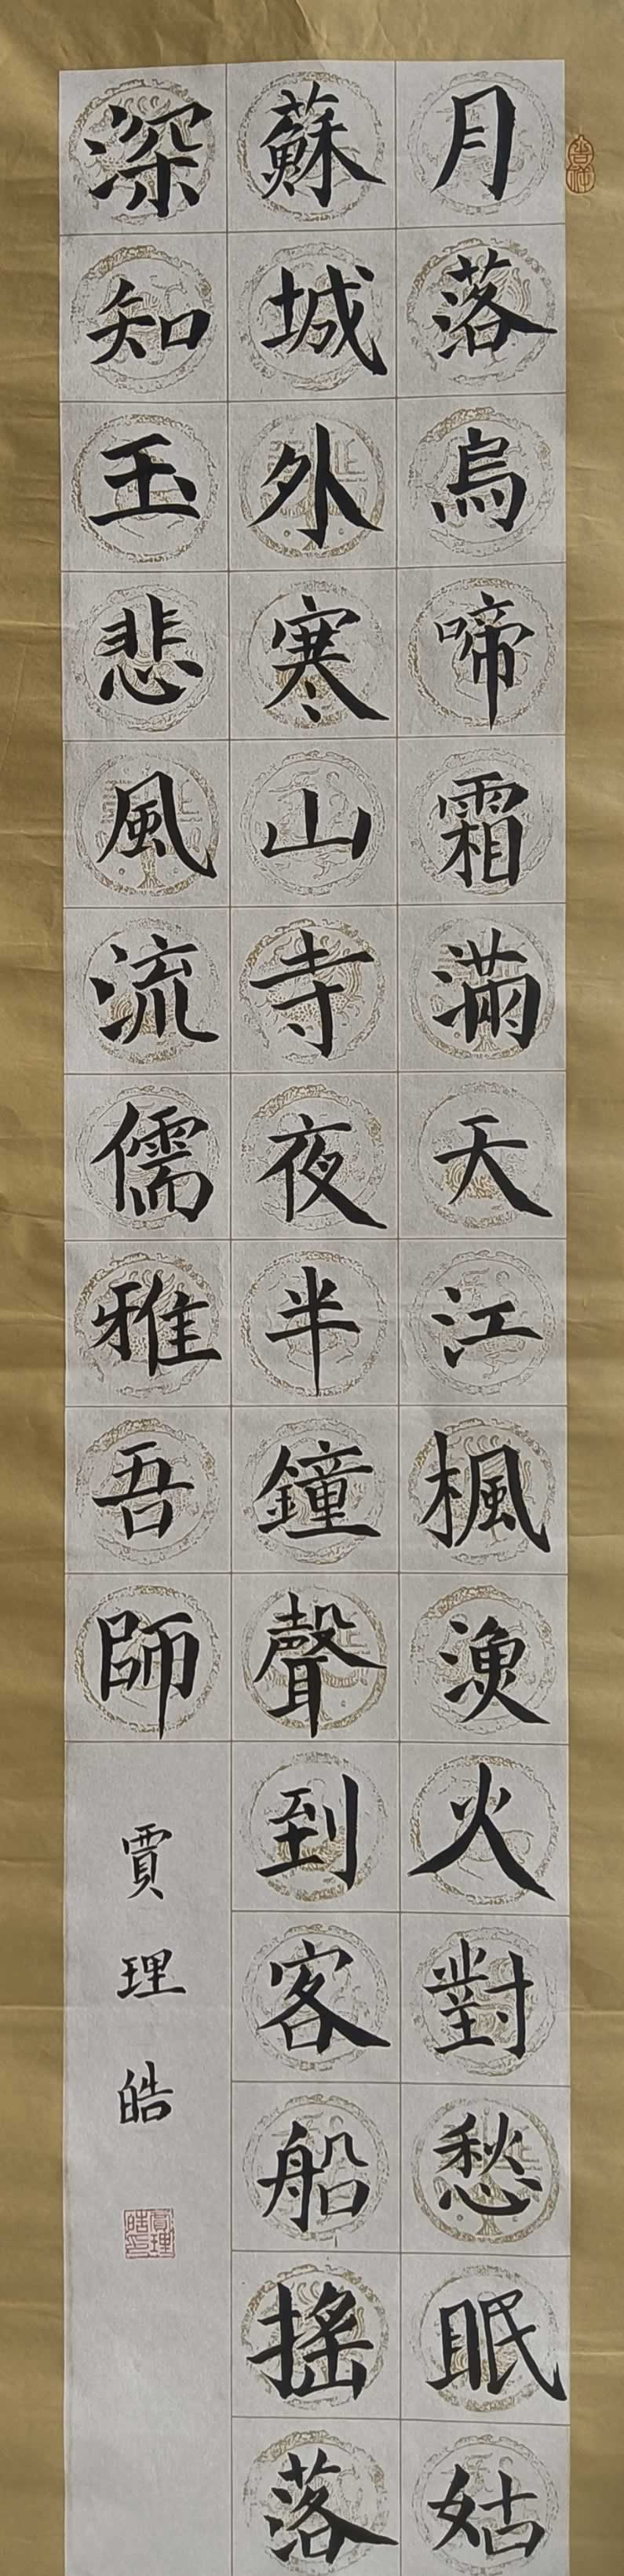 月落烏啼霜滿天江楓漁火對愁眠姑
蘇城外寒山寺夜半鐘聲到客船搖落
深知玉悲風流儒雅吾師
賈理皓
吉祥
賈理皓印